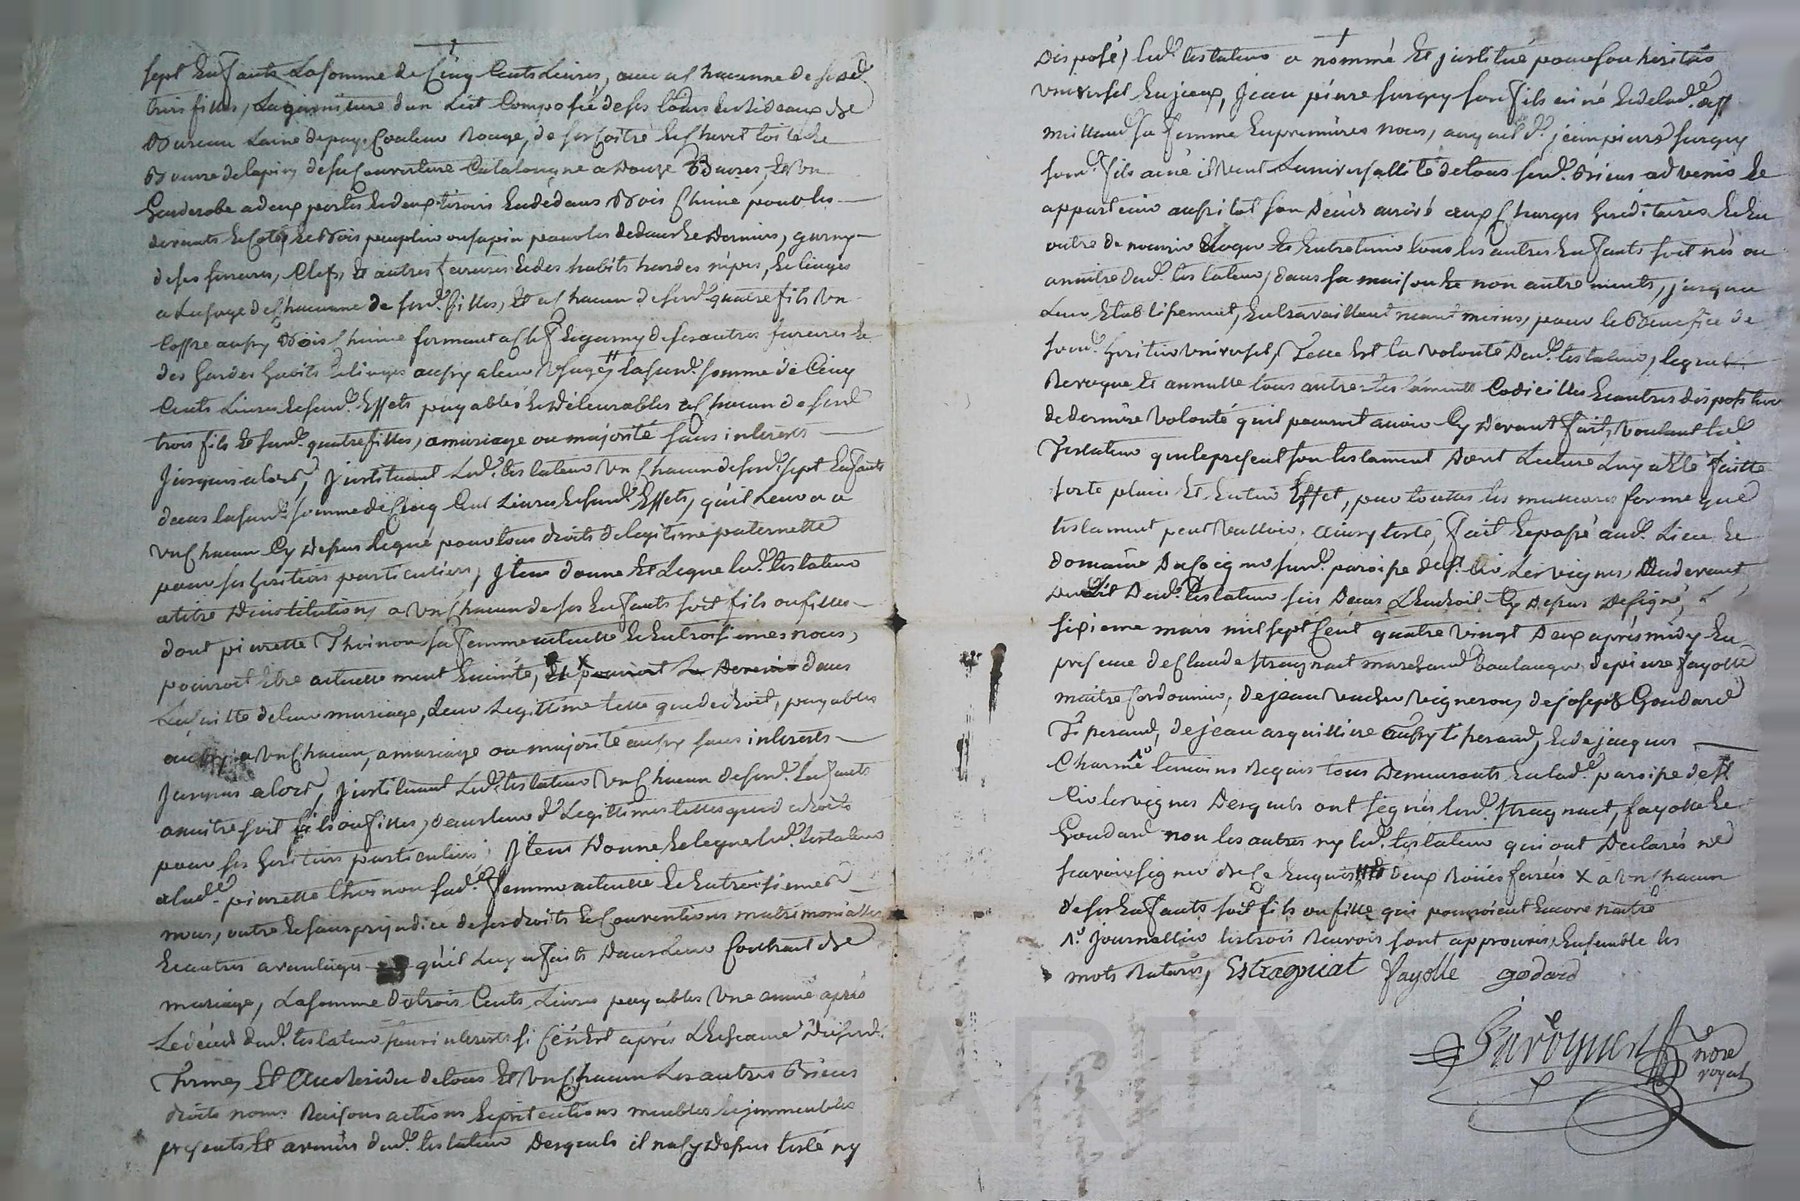 sept Enfants La somme de Cinq Cents Livres, avec a chacunne de sesd.
trois filles, La garniture d'un Lict Composée de ses tours En rideaux de
Bureau Laine de pays Couleur Rouge, de son Coitre Et Chevet toile de
Baure de lapin de sa Couverture Catalougne a Douze Barres, Et un
Garderobe a deux portes Et deux tirois En dedans Bois Chaine pour les
devants Et Cotés Et Bois peuplier ou sapin pour les dedans Et Derniers, garny
de ses ferrures, Clefs, Et autres ferures Et des habits hardes nipes, Et linges
a Lusage de Chacunne de sesd. filles, Et a Chacun de sesd. quatre fils un
Coffre aussy Bois Chaine formant a Clef Et garny de ses autres ferures Et
des hardes habits Et linges aussy a leur usages lasusd. somme de Cinq
Cents Livres Et susd. Effets payables Et Délivrables a Chacun de sesd.
trois fils Et susd. quatre filles, a mariage ou majorité sans interets
Jusques alors, Instituant Led. testateur un Chacun de sesd. sept Enfants
dans lasusd. somme de Cinq Cent Livres Et susd. Effets, qu'il Leur a a
un Chacun Cy Depus Legué pour tous droits de legitime paternelle
pour ses heritiers particuliers, Item donne Et Legue Led. testateur
a titre D'institution a un Chacun de ses Enfants soit fils ou filles
dont pierrette Thoinon sa femme actuelle Et En troisiemes nous,
pourroit Etre actuellement Enceinte, dans
La suitte de leur mariage, Leur Legitime telle que de droit, payables
aussy a un Chacun, a mariage ou majorité aussy sans interets
Jusques alors, Instituant Led. testateur un Chacun de sesd. Enfants
a naitre soit fils ou filles, dans leurd. Legitimes telles que de droits
pour ses heritiers particuliers; Item Donne Et legue led. testateur
a lad. pierrette thoinon sad. femme actuelle Et En troisiemes
nous, outre Et sans prejudice de ses droits Et Conventions matrimonialles
Et autres avantages qu'il Luy a faits Dans Leur Contract de
mariage, La somme de trois Cents Livres payables une année aprés
Le décés dud. testateur sans interets si Ce n'est aprés L'Echeance dud.
Terme, Et Au de tous Et un Chacun Les autres Biens
droits noms Raisons actions Et pretentions meubles Et immeubles
presents Et avenirs dud. testateur Desquels il n'a Cy Depus testé ny
Disposé, led. testateur a nommé Et institué pour son heritier
universel En jeux, Jean pierre furgey son fils ainé Et de lad.
millaud sa femme En premiéres nous, auquel d. jean pierre furgey
sond. fils ainé il veut L'universallité de tous sesd. Biens advenir Et
appartenir aussitot son Décés arrivé aux Charges hereditaires Et En
outre de nourrir Loger Et Entretenir tous les autres Enfants soit nés ou
a naitre dud. testateur, dans sa maison Et non autrements, jusqua
Leur Etablissement, En travaillant neant moins, pour le Benefice de
sond. heritier universel, Telle Est la volonté Dud. testateur, lequel
Revoque Et annulle tous autres testaments Codicilles Et autres dispositions
de derniére volonté qu'il pourroit avoir Cy Devant fait, voulant led.
Testateur que le present son testament Dont Lecture Luy a Eté faitte
sorte plain Et Entier Effet, par toutes les meilleures forme que
testament peut valloir. Ainsy testé, fait Et passé aud. Lieu Et
domaine Dusoigne susd. paroisse de St. Cir Les vignes, Au devant
du Lit Dud. testateur sis Dans L'Endroit Cy Depus Designé, le
sixieme mars mil sept Cent quatre vingt Deux aprés midy En
presence de Claude Stragnat marchand boulanger, de pierre fayolle
maitre Cordonnier, de jean vacher vigneron, de joseph Goudard
Tisserand, de jean arquilliere aussy tisserand, Et de jacques
Charme témoins Requis tous Demeurants En lad. paroisse de St.
Cir les vignes Desquels ont signés lesd. Stragnat, fayolle Et
Goudard non les autres ny led. testateur qui ont Déclarés ne
sçavoir signer de ce Enquis deux Roiés ferés X a un Chacun
de ses Enfants soit fils ou fille qui pourroient Encore naitre
Journallier les trois Renvois sont approuvés, Ensemble les
mots Raturés, Estragniat fayolle godard
nore
royal